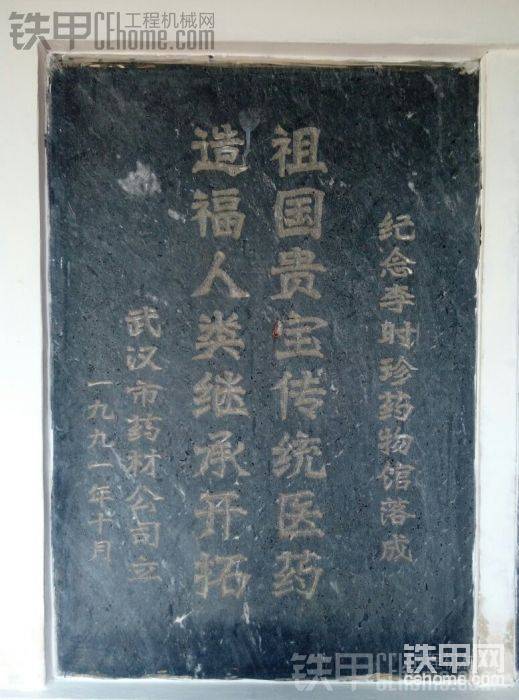 铁甲工程机械网
CEhome.com
纪念李时珍药物馆落成
祖国贵宝传统医药
造福人类继承开拓
武汉市药材公司立
一九九一年十月
铁甲网
铁甲工程机械网
CEhome.com